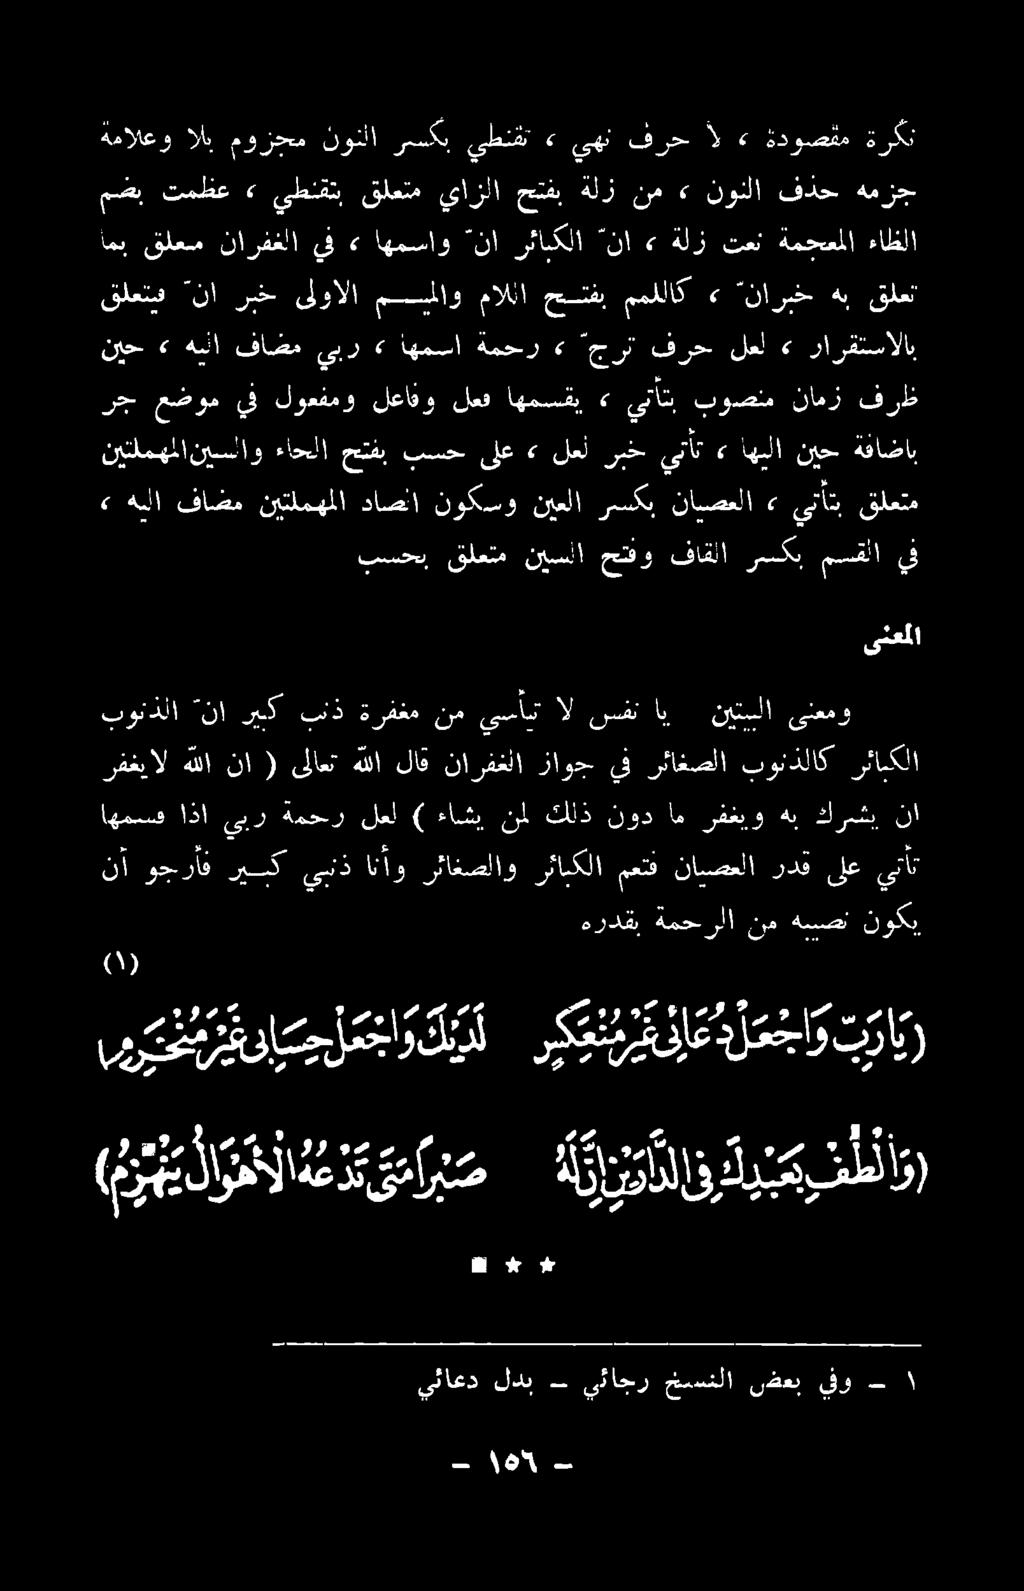 نكرة مقصودة ، لا حرف نهي ، تقنطي بكسر النون مجزوم بلا وعلامة
جزمه حذف النون ، من زلة بفتح الزاي متعلق بتقنطي ، عظمت بضم
الظاء المعجمة نعت زلة ، انّ الكبائر انّ واسمها ، في الغفران متعلق بما
تعلق به خبرانّ ، كاللمم بفتح اللام والميم الاولى خبر انّ فيتعلق
بالاستقرار ، لعل حرف ترجّ ، رحمة اسمها ، ربي مضاف اليه ، حين
ظرف زمان منصوب بتأتي ، يقسمها فعل وفاعل ومفعول في موضع جر
باضافة حين اليها ، تأتي خبر لعل ، على حسب بفتح الحاء والسينالمهملتين
متعلق بتأتي ، العصيان بكسر العين وسكون الصاد المهملتين مضاف اليه ،
في القسم بكسر القاف وفتح السين متعلق بحسب
المعنى
ومعنى البيتين يا نفس لا تيأسي من مغفرة ذنب كبير انّ الذنوب
الكبائر كالذنوب الصغائر في جواز الغفران قال الله تعالى ( ان الله لايغفر
ان يشرك به ويغفر ما دون ذلك لمن يشاء ) لعل رحمة ربي اذا قسمها
تأتي على قدر العصيان فتعم الكبائر والصغائر وأنا ذنبي كبير فأرجو أن
يكون نصيبه من الرحمة بقدره
(١)
(يَارَبِّ وَاجْعَلْ دُعَائِي غَيْرَ مُنْعَكِسٍ لَدَيْكَ وَاجْعَلْ حِسَابِي غَيْرَ مُنْخَرِمِ)
(وَالْطُفْ بِعَبْدِكَ فِي الدَّارَيْنِ إِنَّ لَهُ صَبْراً مَتَى تَدْعُهُ الْأَهْوَالُ يَنْهَزِمُ)
■ ☆ ☆
١ – وفي بعض النسخ رجائي – بدل دعائي
– ١٥٦ –